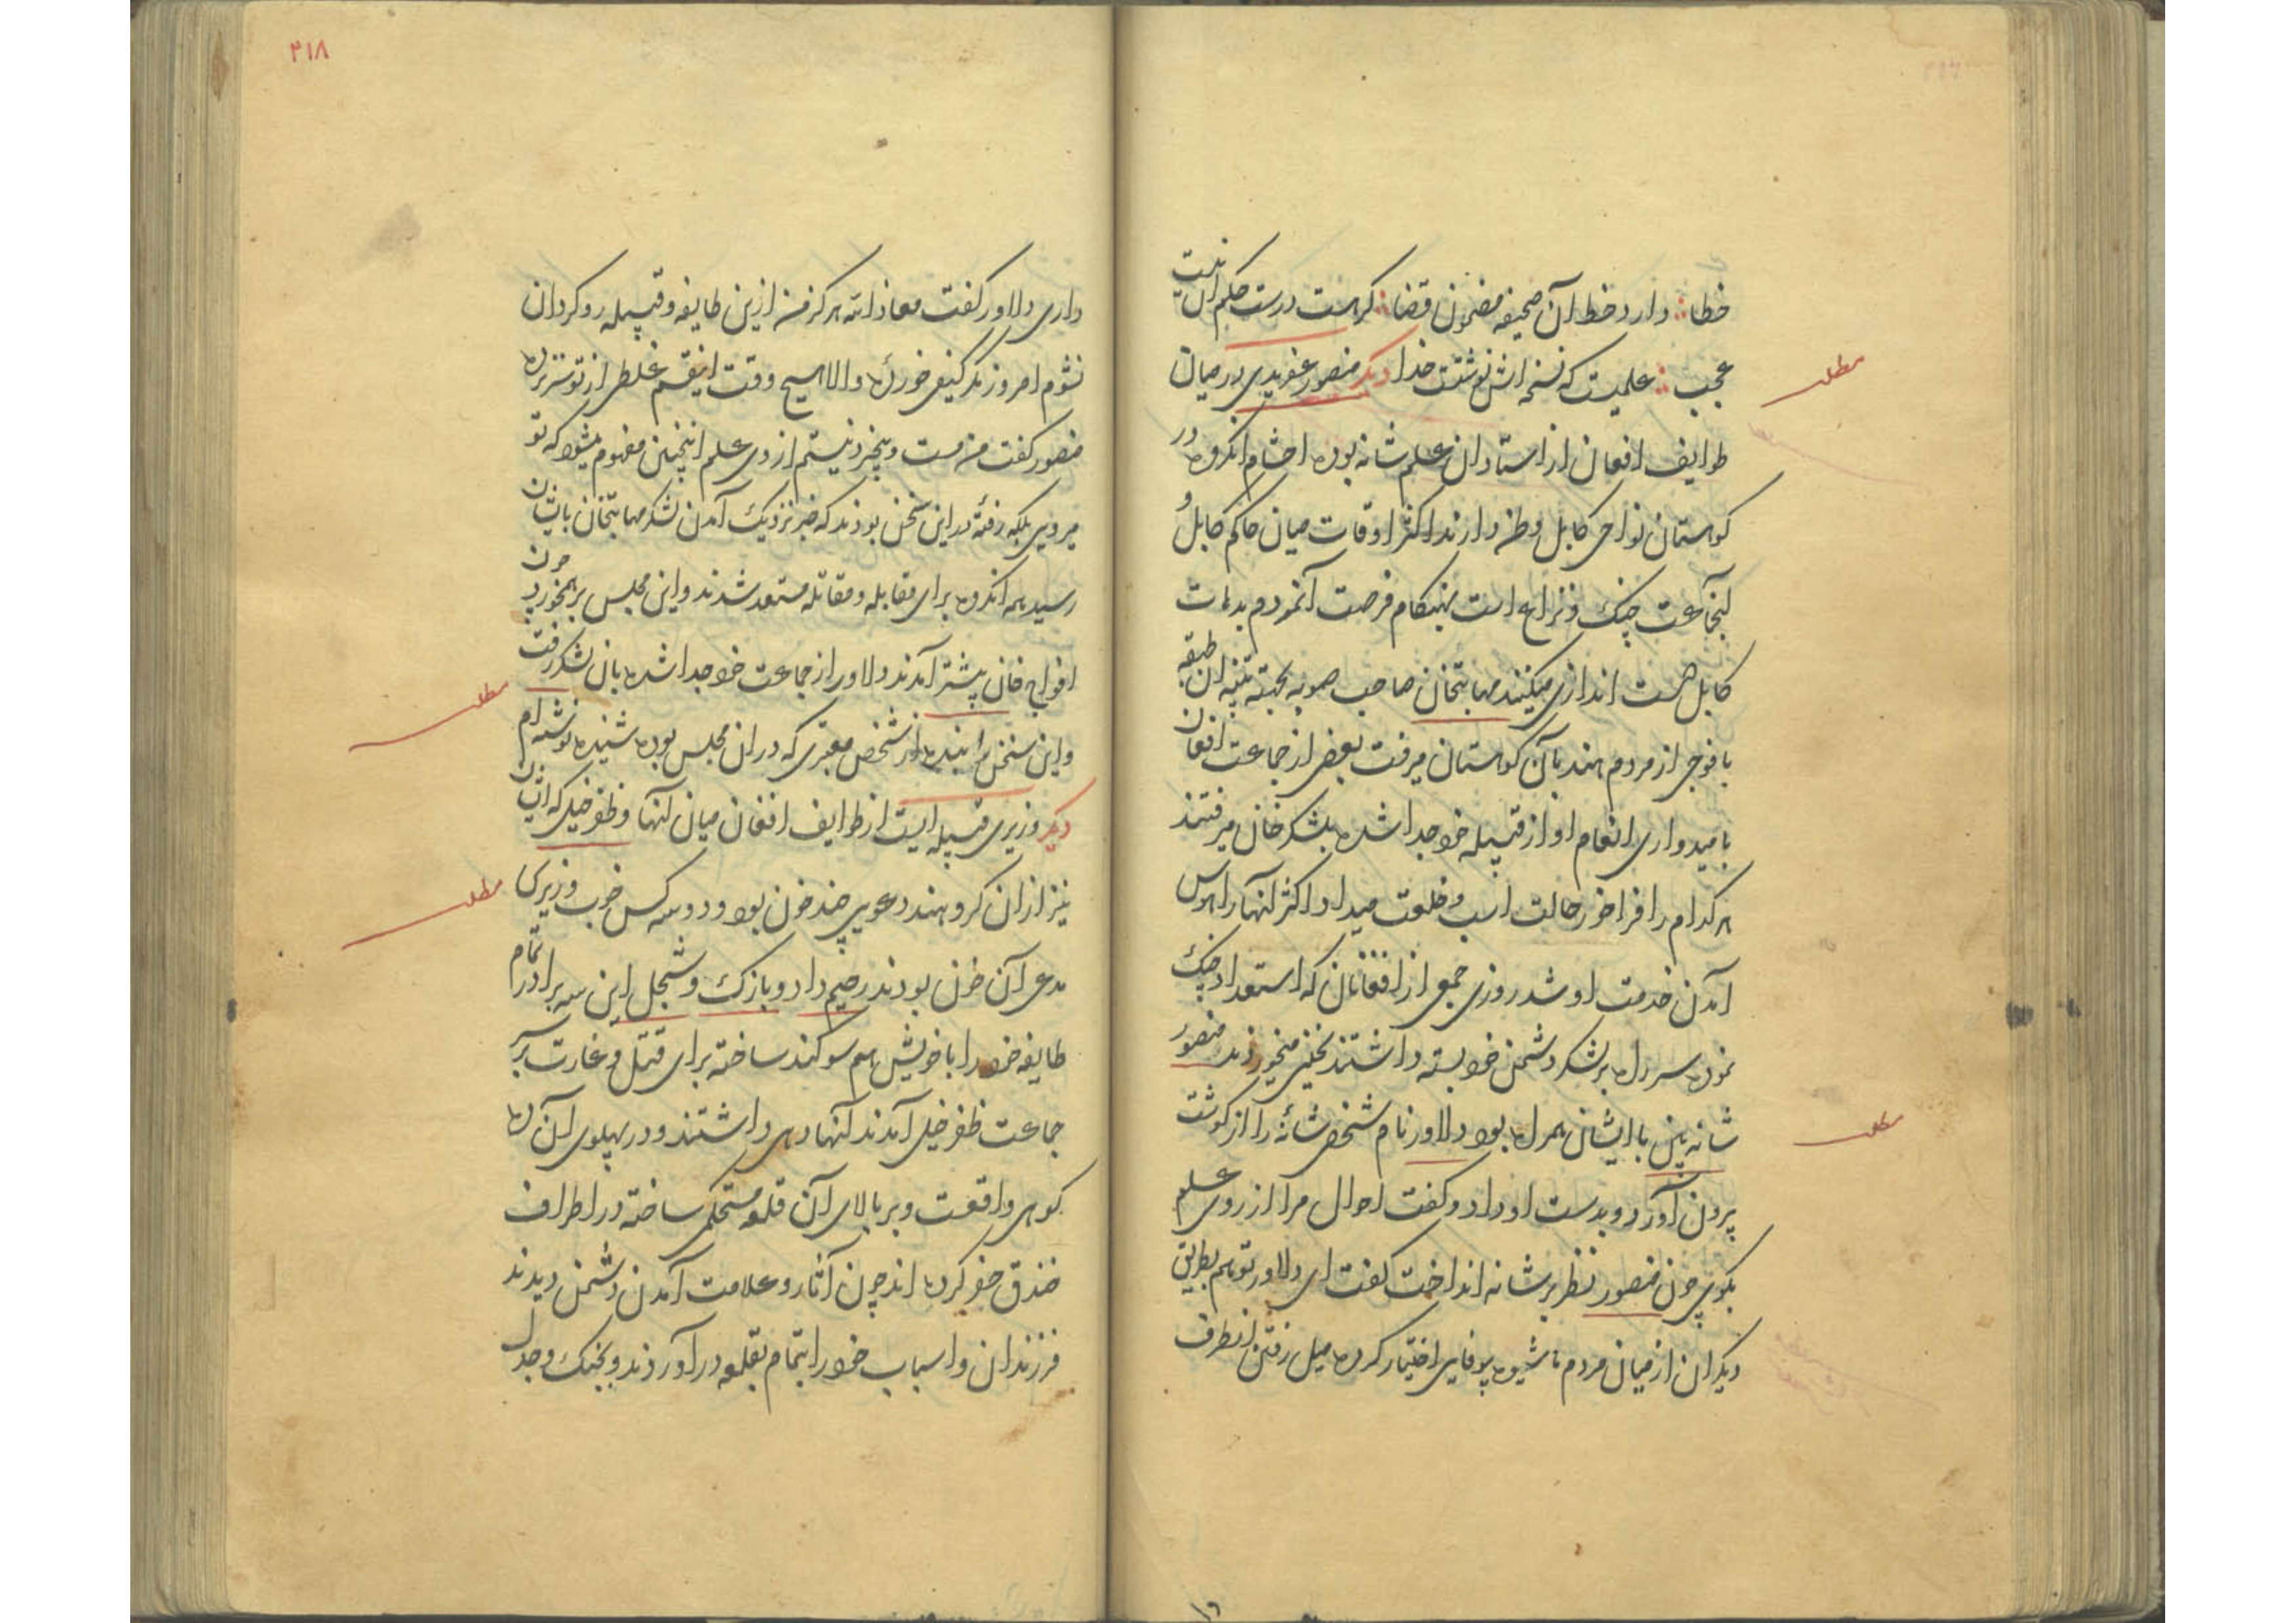 خطا دارد خط آن صحیفه مضمون قضا که هست درست حکم آن نیست
عجب علمیست که نسخه اش نوشتست خدا دیگر منصور عفریدی در میان
طوایف افغان از استادان علم شانه بوده احشام انکروه در
کوهستان نواحی کابل وطن دارند اکثر اوقات میان حاکم کابل و
اینجماعت جنک و نزاع است بهنکام فرصت آنمردم بدهات
کابل دست اندازی میکنند مهابتخان صاحب صوبه بجهته تنبیه ان طبقه
با فوجی از مردم هند بآن کوهستان میرفت بعضی از جماعت افغان
بامیدواری انعام او از قبیله خود جدا شده بلشکر خان میرفتند
هر کدام را فراخور حالت اسب و خلعت میداد اکثر آنها را هوس
آمدن خدمت او شد روزی جمعی از افغانان که استعداد جنک
نموده سر راه بر لشکر دشمن خود بسته داشتند نخنی میخوردند منصور
شانه بین با ایشان همراه بود دلاور نام شخصی شانهٔ را از کوشت
بیرون آورد و بدست او داد و کفت احوال مرا از روی علم
بکوی چون منصور نظر بر شانه انداخت کفت ای دلاور تو هم بطریق
دیکران از میان مردم ما شیوه بیوفایی اختیار کرده میل رفتن انطرف
۴۱۸
داری دلاور کفت معاذ الله هرکز من ازین طایفه و قبیله روکردان
نشوم امروز مکر کیفی خورده والا هیچ وقت اینقسم غلطی از تو سر نزده
منصور کفت من مست و بیخرد نیستم از روی علم اینچنین مفهوم میشود که تو
میروی بلکه رفتهٔ در این سخن بودند که خبر نزدیک آمدن لشکر مهابتخان بایشان
رسید همه انکروه برای مقابله و مقاتله مستعد شدند و این مجلس برهم خورد چون
افواج خان پیشتر آمدند دلاور از جماعت خود جدا شده بان لشکر رفت
و این سخن را بنده از شخص معتبری که در ان مجلس بوده شنیده نوشته ام
دیکر وزیری قبیله ایست از طوایف افغان میان آنها و ظفر خیل که ایشان
نیز ازان کروهند دعوی چند خون بود و دو سه کس خوب وزیری
مدعی آن خون بودند رحیم داد و بازک و شجل این سه برادر تمام
طایفه خود را با خویش هم سوکند ساخته برای قتل و غارت بر سر
جماعت ظفر خیل آمدند آنها دهی داشتند و در پهلوی آن ده
کوهی واقعست و بر بالای آن قلعه مستحکمی ساخته در اطراف
خندق حفر کرده اند چون آثار و علامت آمدن دشمن دیدند
فرزندان و اسباب خود را بتمام بقلعه در آوردند و بجنک و جدل
مطلب
مطلب
مطلب
مطلب